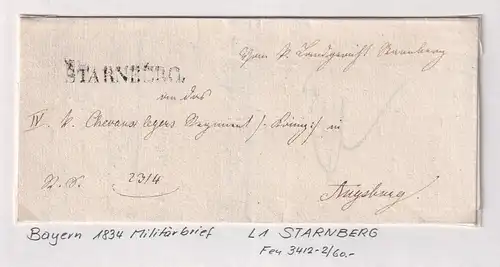 Vom k. Landgericht Starnberg
STARNBERG.
an das
IV. k. Chevaux legers Regiment /: König :/ in
N. E. 2314
Augsburg.
Bayern 1834 Militärbrief L1 STARNBERG
Feu 3412-2/60.-